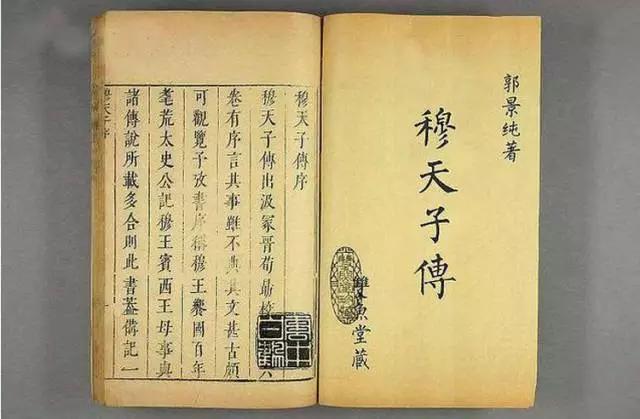 郭景純著
穆天子傳
雙魚堂藏
穆天子傳序
穆天子傳出汲冢晉荀勗校
卷有序言其事雖不典其文甚古頗
可觀覽予攷書序稱穆王饗國百年
耄荒太史公記穆王賓西王母事與
諸傳說所載多合則此書蓋備記一
穆天子序